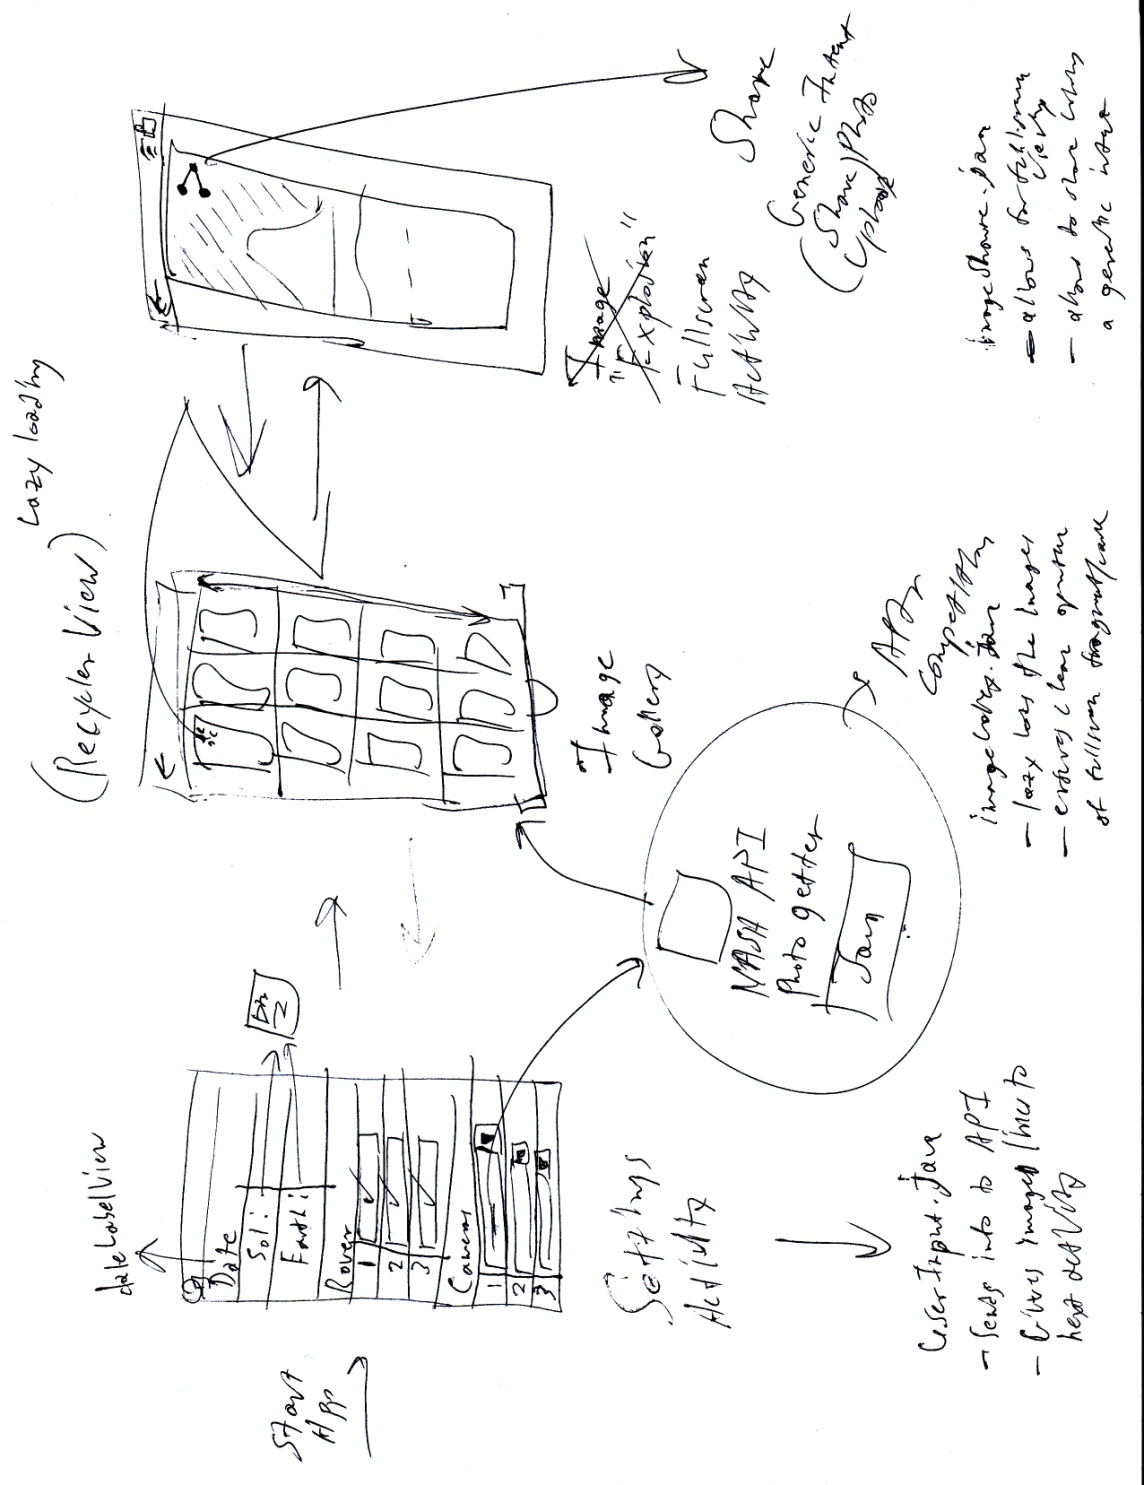 Start
App
dateLabelView
Date
Sol:
Earth:
Rover
1
2
3
Cameras
1
2
3
Settings
Activity
UserInput.java
- Sends info to API
- Gives images/links to
next activity
NASA API
Photo getter
Java
API
(Recycler View)
Lazy loading
Image
Gallery
- lazy loads the images
- ensures clean
of fullscreen
Image
"Explosion"
Fullscreen
Activity
Share
Generic Intent
(Share/Photo
Upload
imageShower.java
- allows for fullscreen
viewing
- allows to share using
a generic intent